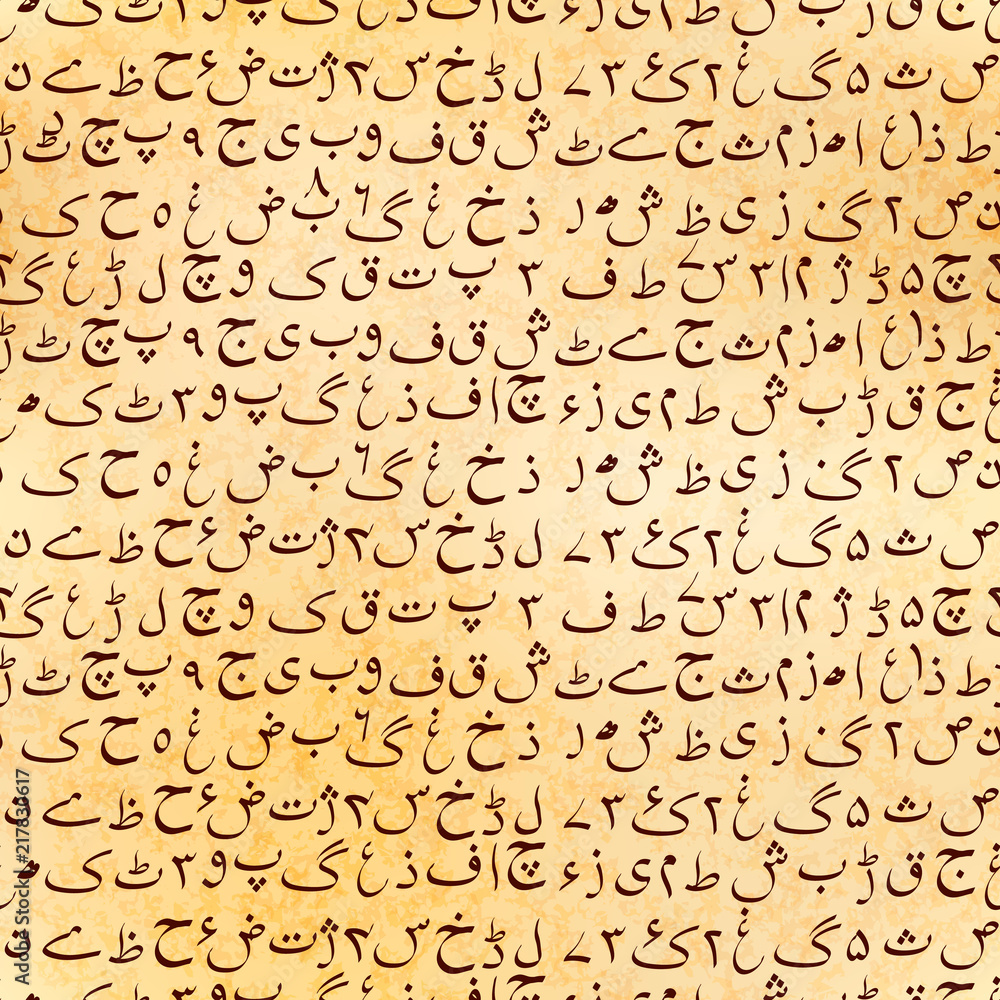 ص ث ۵ گ غ ۲ ک ء ۳ ل ڈ خ س ۲ ژ ت ض ء ح ظ ے ن
ط ذ ا غ ا ھ ز م ث ج ے ٹ ش ق ف و ب ی ج ۹ پ چ ٹ
ن ص ۲ گ ز ی ظ ش ھ ر ذ خ غ گ ۶ ب ۸ ض غ ۵ ح ک
چ ۵ ڈ ژ م ا ۳ س ط ف ۳ پ ت ق ک و چ ل ڑ ء گ ۲
ط ذ ا غ ا ھ ز م ث ج ے ٹ ش ق ف و ب ی ج ۹ پ چ ٹ
ج ق ڑ ب ش ط م ی ز ء چ ا ف ذ ع گ پ و ۳ ٹ ک ھ
ن ص ۲ گ ز ی ظ ش ھ ر ذ خ غ گ ۶ ب ض غ ۵ ح ک
ص ث ۵ گ غ ۲ ک ء ۳ ل ڈ خ س ۲ ژ ت ض ء ح ظ ے ن
چ ۵ ڈ ژ م ا ۳ س ط ف ۳ پ ت ق ک و چ ل ڑ ء گ ۲
ط ذ ا غ ا ھ ز م ث ج ے ٹ ش ق ف و ب ی ج ۹ پ چ ٹ
ن ص ۲ گ ز ی ظ ش ھ ر ذ خ غ گ ۶ ب ض غ ۵ ح ک
ص ث ۵ گ غ ۲ ک ء ۳ ل ڈ خ س ۲ ژ ت ض ء ح ظ ے
ج ق ڑ ب ش ط م ی ز ء چ ا ف ذ ع گ پ و ۳ ٹ ک ھ
ص ث ۵ گ غ ۲ ک ء ۳ ل ڈ خ س ۲ ژ ت ض ء ح ظ ے
Adobe Stock | #217830617